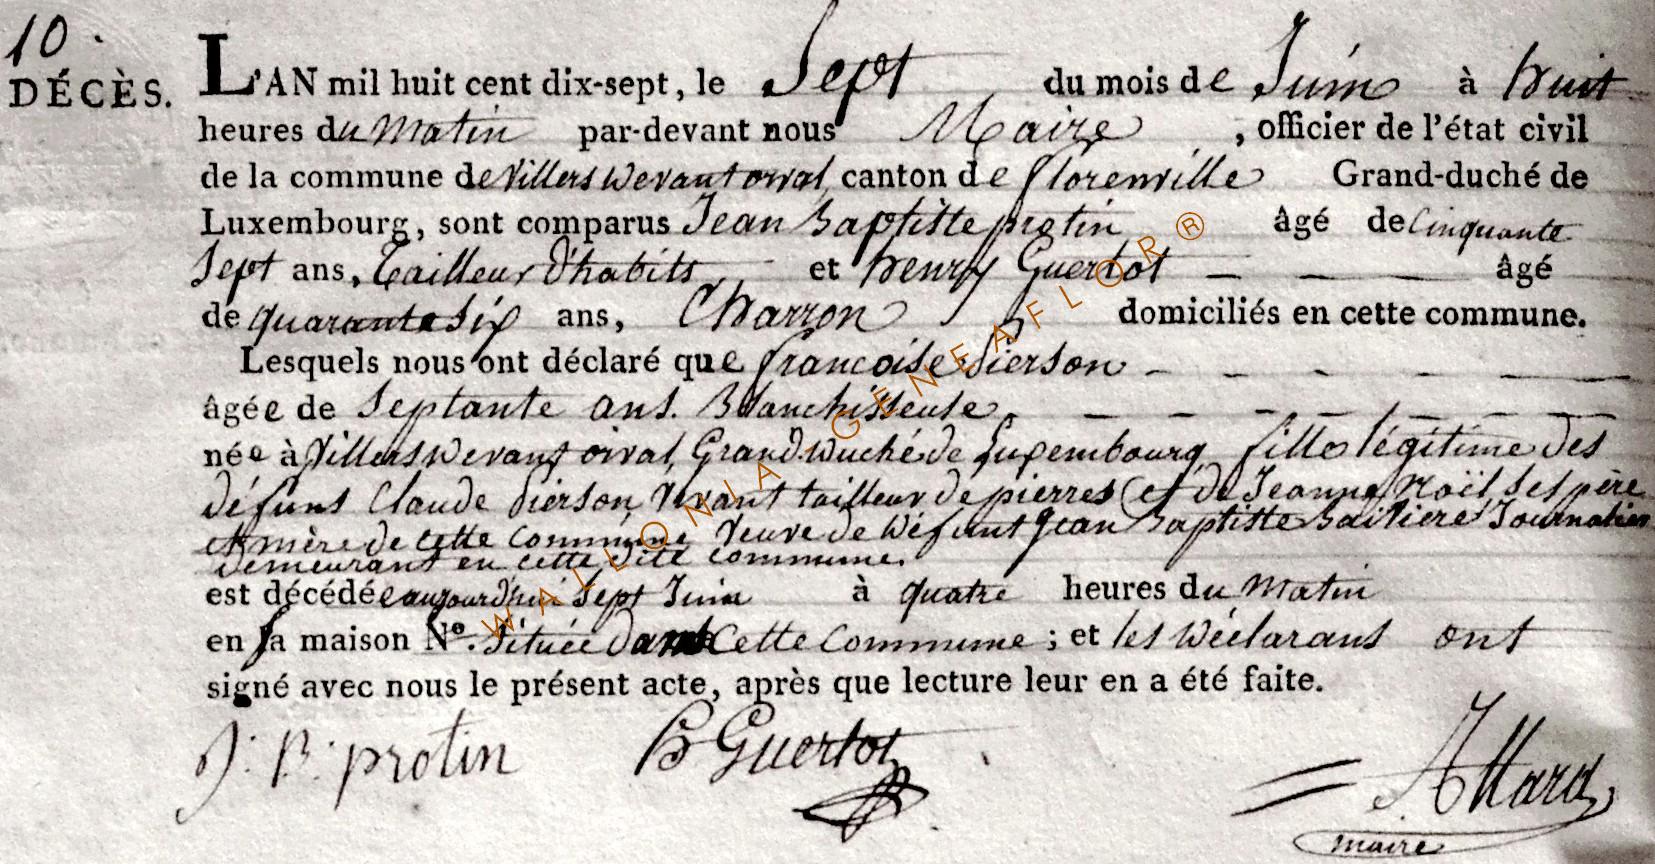 10.
DÉCÈS.
L'AN mil huit cent dix-sept, le Sept du mois de Juin à huit
heures du Matin par-devant nous Maire, officier de l'état civil
de la commune de Villers devant orval, canton de florenville Grand-duché de
Luxembourg, sont comparus Jean Baptiste protin âgé de Cinquante
Sept ans, Tailleur D'habits et henry Guertot — — — âgé
de quarante Six ans, Charron domiciliés en cette commune.
Lesquels nous ont déclaré que françoise Pierson - - - -
âgée de Septante ans. Blanchisseuse, - - - -
née à Villers devant orval, Grand Duché de Luxembourg fille légitime des
défuns Claude Pierson, vivant tailleur de pierres et de Jeanne Noël, Ses père
et mère de cette Commune, Veuve de défunt Jean Baptiste Journalier
demeurant en cette dite commune.
est décédée aujourd'hui Sept Juin à quatre heures du Matin
en sa maison N°. Située dans Cette Commune ; et les déclarans ont
signé avec nous le présent acte, après que lecture leur en a été faite.
J: B: protin
H Guertot
Allard
maire
WALLONIA GENEAFLOR®